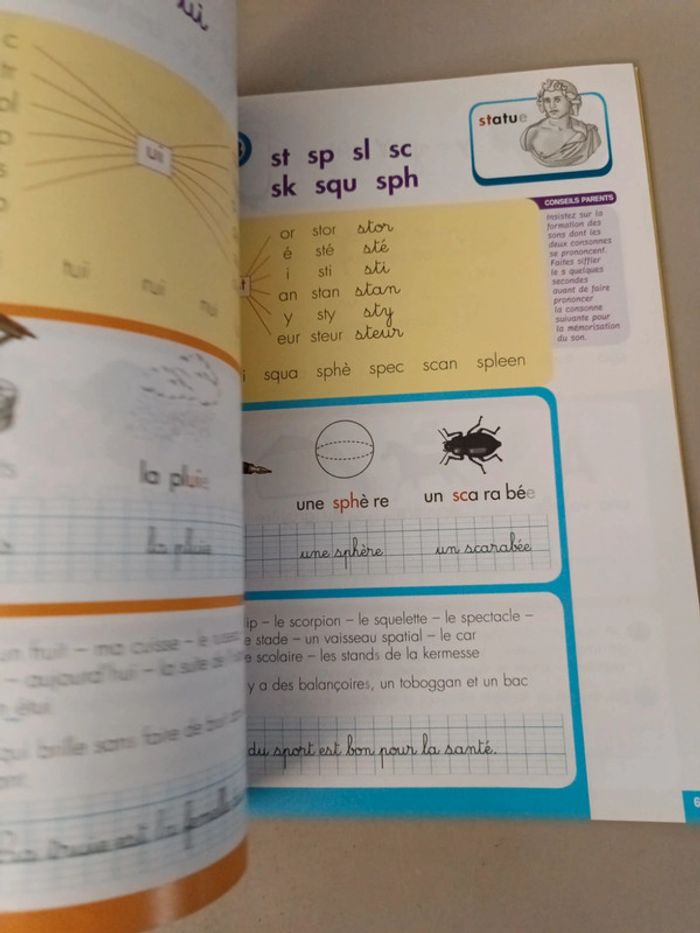 ui
ui
tui rui nui
la pluie
la pluie
un fruit – ma cuisse – le
– aujourd'hui – la suite de
étui
qui brille sans faire de
st sp sl sc
sk squ sph
statue
CONSEILS PARENTS
Insistez sur la
formation des
sons dont les
deux consonnes
se prononcent.
Faites siffler
le s quelques
secondes
avant de faire
prononcer
la consonne
suivante pour
la mémorisation
du son.
or stor stor
é sté sté
i sti sti
an stan stan
y sty sty
eur steur steur
i squa sphè spec scan spleen
une sphè re un sca ra bée
une sphère un scarabée
ip – le scorpion – le squelette – le spectacle –
e stade – un vaisseau spatial – le car
e scolaire – les stands de la kermesse
y a des balançoires, un toboggan et un bac
du sport est bon pour la santé.
6